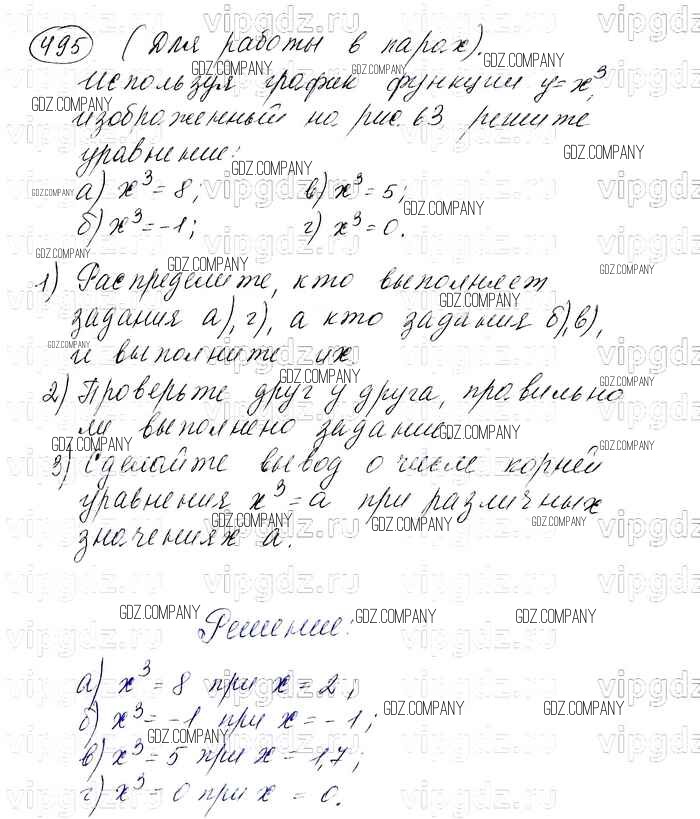 495 (Для работы в парах).
Используя график функции y=x³,
изображенный на рис. 63 решите
уравнение:
а) x³=8; в) x³=5;
б) x³=-1; г) x³=0.
1) Распределите, кто выполняет
задания а), г), а кто задания б), в),
и выполните их.
2) Проверьте друг у друга, правильно
ли выполнено задание.
3) Сделайте вывод о числе корней
уравнения x³=a при различных
значениях a.
Решение:
а) x³=8 при x=2;
б) x³=-1 при x=-1;
в) x³=5 при x=1,7;
г) x³=0 при x=0.
GDZ.COMPANY
vipgdz.ru